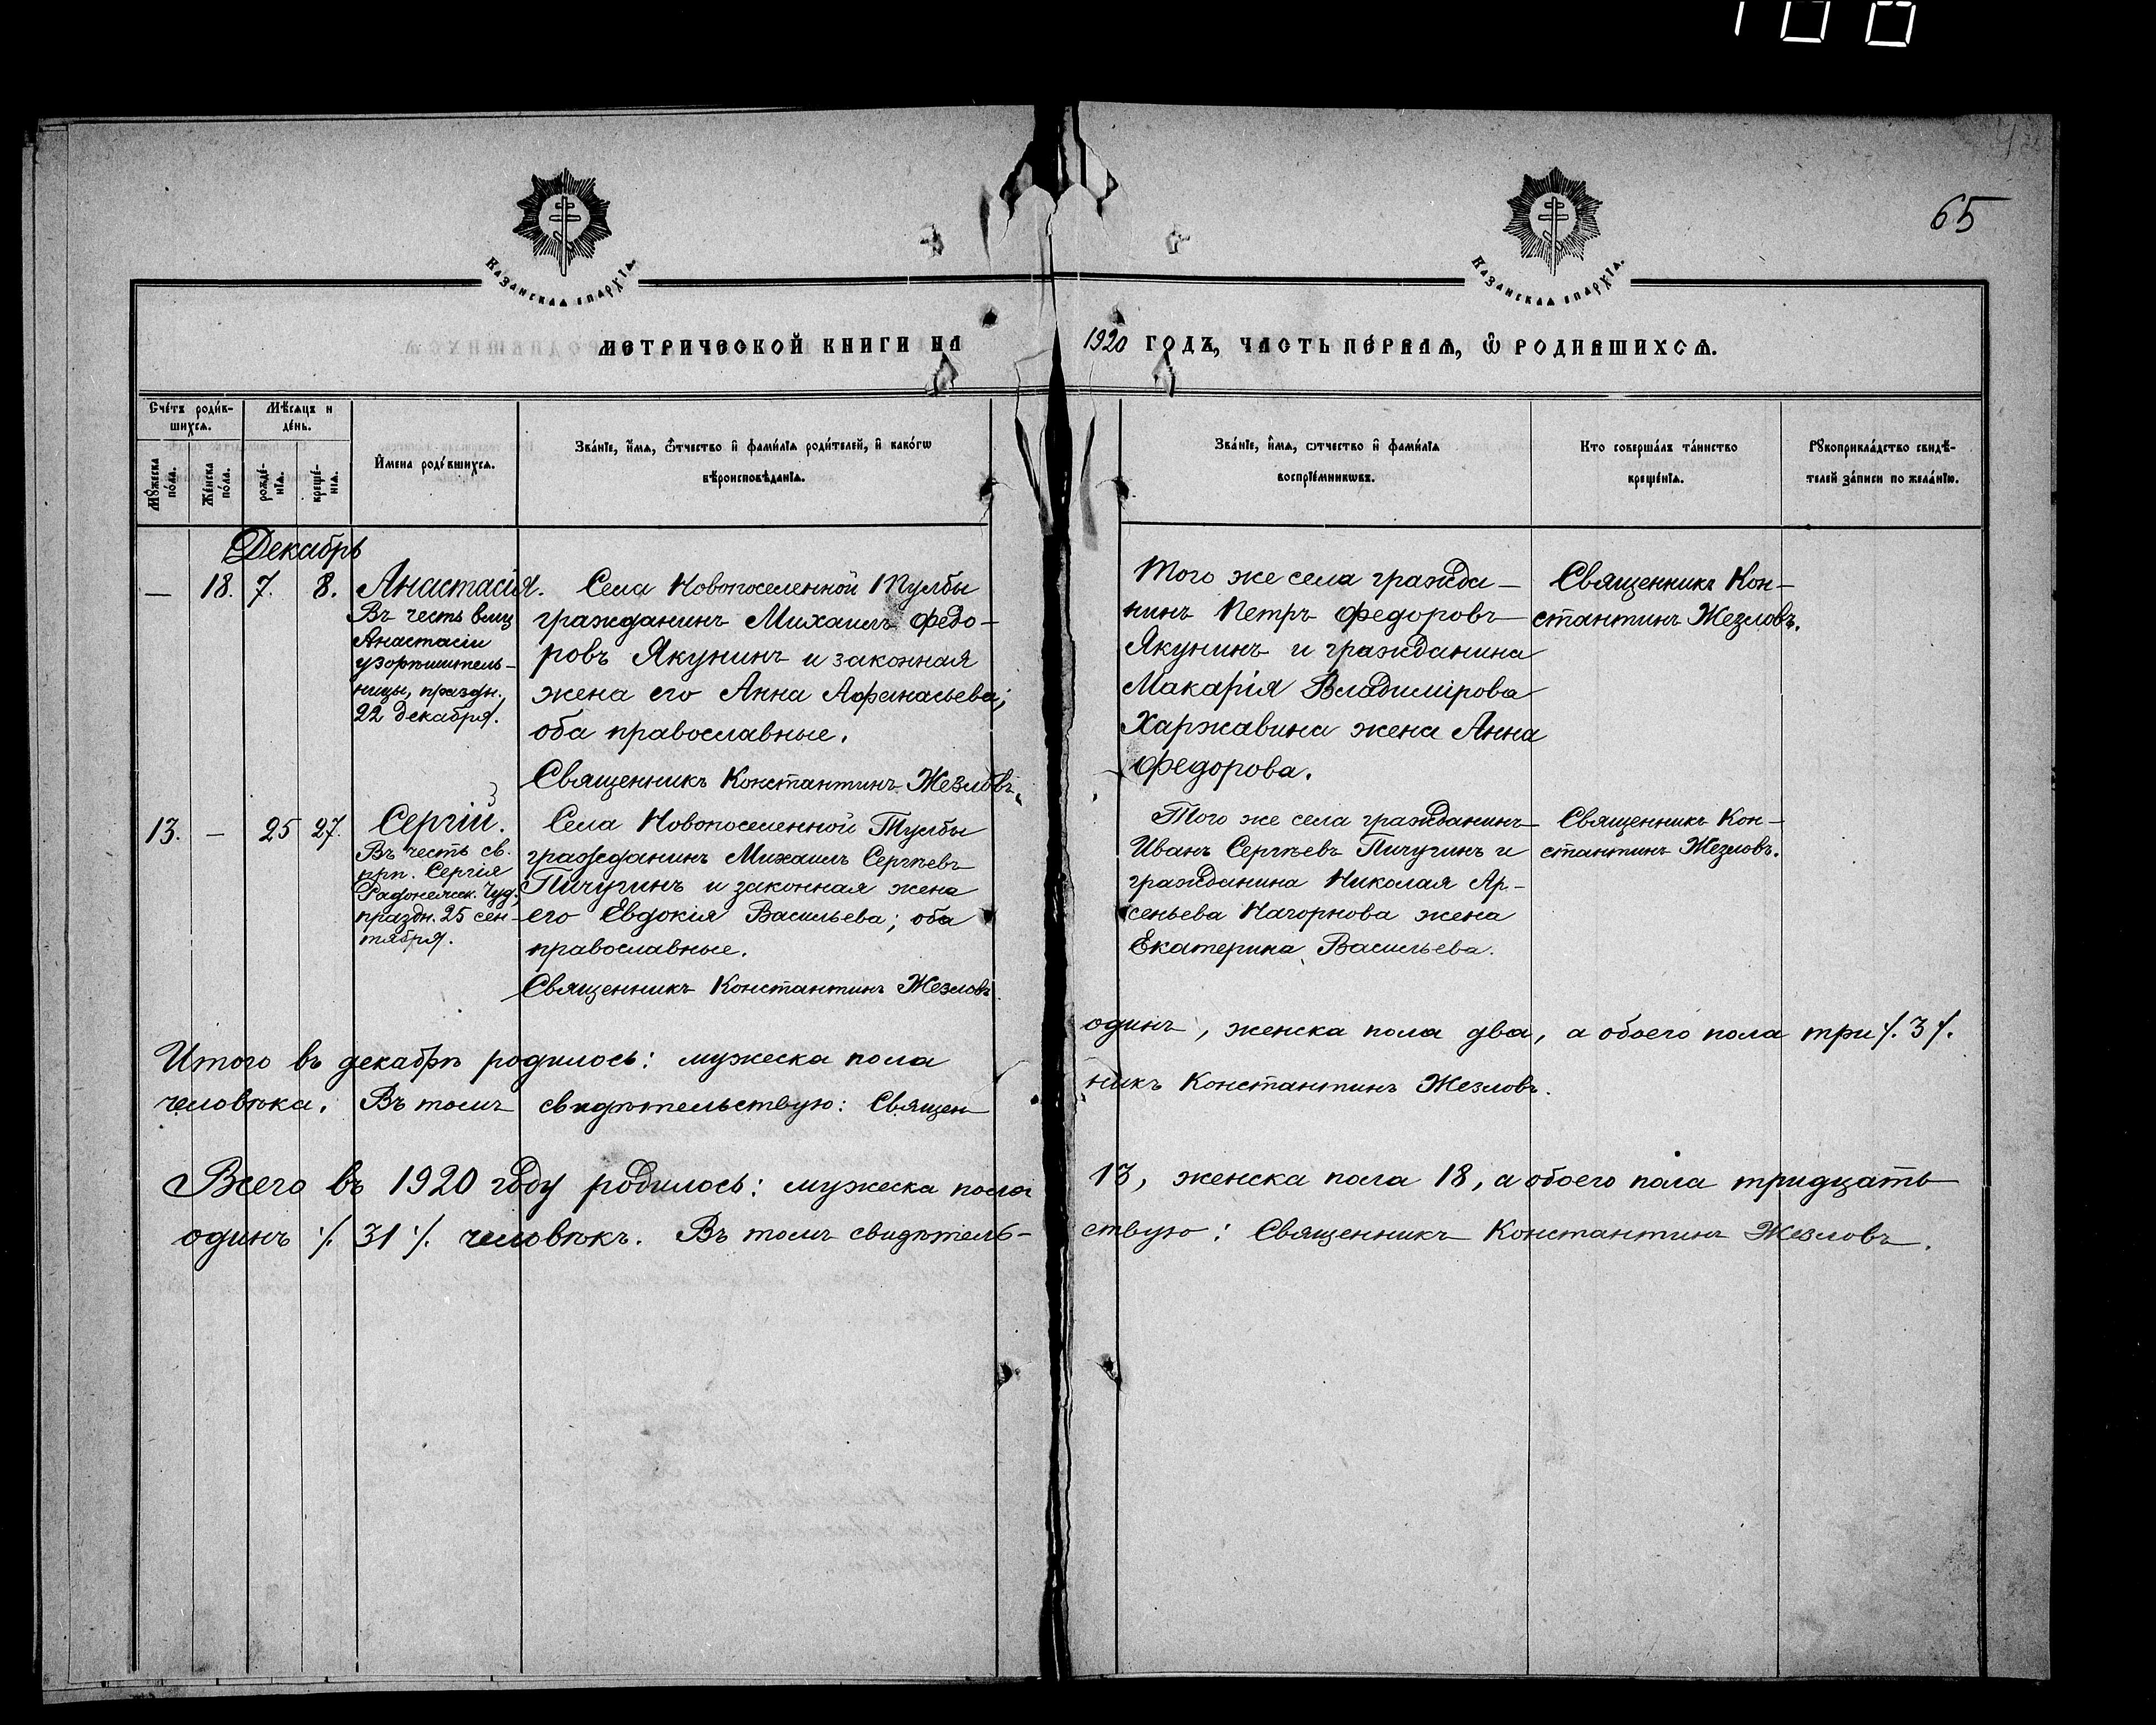 100
65
Казанская епархїа.
Казанская епархїа.
МЕТРИЧЕСКОЙ КНИГИ НА 1920 ГОДЪ, ЧАСТЬ ПЕРВАѦ, Ѽ РОДИВШИХСѦ.
Сче́тъ роди́в-
шихсѧ.
Мѣ́сѧцъ и
де́нь.
Мꙋ́жеска
по́ла.
Же́нска
по́ла.
рожде́-
нїѧ.
креще́-
нїѧ.
И҆мена роди́вшихсѧ.
Зва́нїе, и҆́мѧ, ѻ҆́тчество и҆ фами́лїѧ роди́телей, и҆ како́гѡ
вѣроисповѣ́данїѧ.
Зва́нїе, и҆́мѧ, ѻтчество и҆ фами́лїѧ
воспрїе́мникѡвъ.
Кто соверша́лъ та́инство
креще́нїѧ.
Рꙋкоприкла́дство свидѣ́-
телей за́писи по жела́нїю.
Декабрь
— 18. 7. 8. Анастасія.
Въ честь влмц
Анастасіи
узорѣшитель-
ницы, праздн.
22 декабря.
Села Новопоселенной Тулбы
гражданинъ Михаилъ Федо-
ровъ Якунинъ и законная
жена его Анна Афанасьева;
оба православные.
Священникъ Константинъ Жезловъ.
Того же села гражда-
нинъ Петръ Федоровъ
Якунинъ и гражданина
Макарія Владимірова
Харжавина жена Анна
Федорова.
Священникъ Кон-
стантинъ Жезловъ.
13. — 25 27. Сергій.
Въ честь св.
прп. Сергія
Радонежск. Чуд.,
праздн. 25 сен-
тября.
Села Новопоселенной Тулбы
гражданинъ Михаилъ Сергѣевъ
Пичугинъ и законная жена
его Евдокія Васильева; оба
православные.
Священникъ Константинъ Жезловъ
Того же села гражданинъ
Иванъ Сергѣевъ Пичугинъ и
гражданина Николая Ар-
сеньева Нагорнова жена
Екатерина Васильева.
Священникъ Кон-
стантинъ Жезловъ.
Итого въ декабрѣ родилось: мужеска пола одинъ, женска пола два, а обоего пола три /. 3 /.
человѣка. Въ томъ свидѣтельствую: Священ никъ Константинъ Жезловъ.
Всего въ 1920 году родилось: мужеска пола 13, женска пола 18, а обоего пола тридцать
одинъ /. 31 /. человѣкъ. Въ томъ свидѣтель- ствую: Священникъ Константинъ Жезловъ.